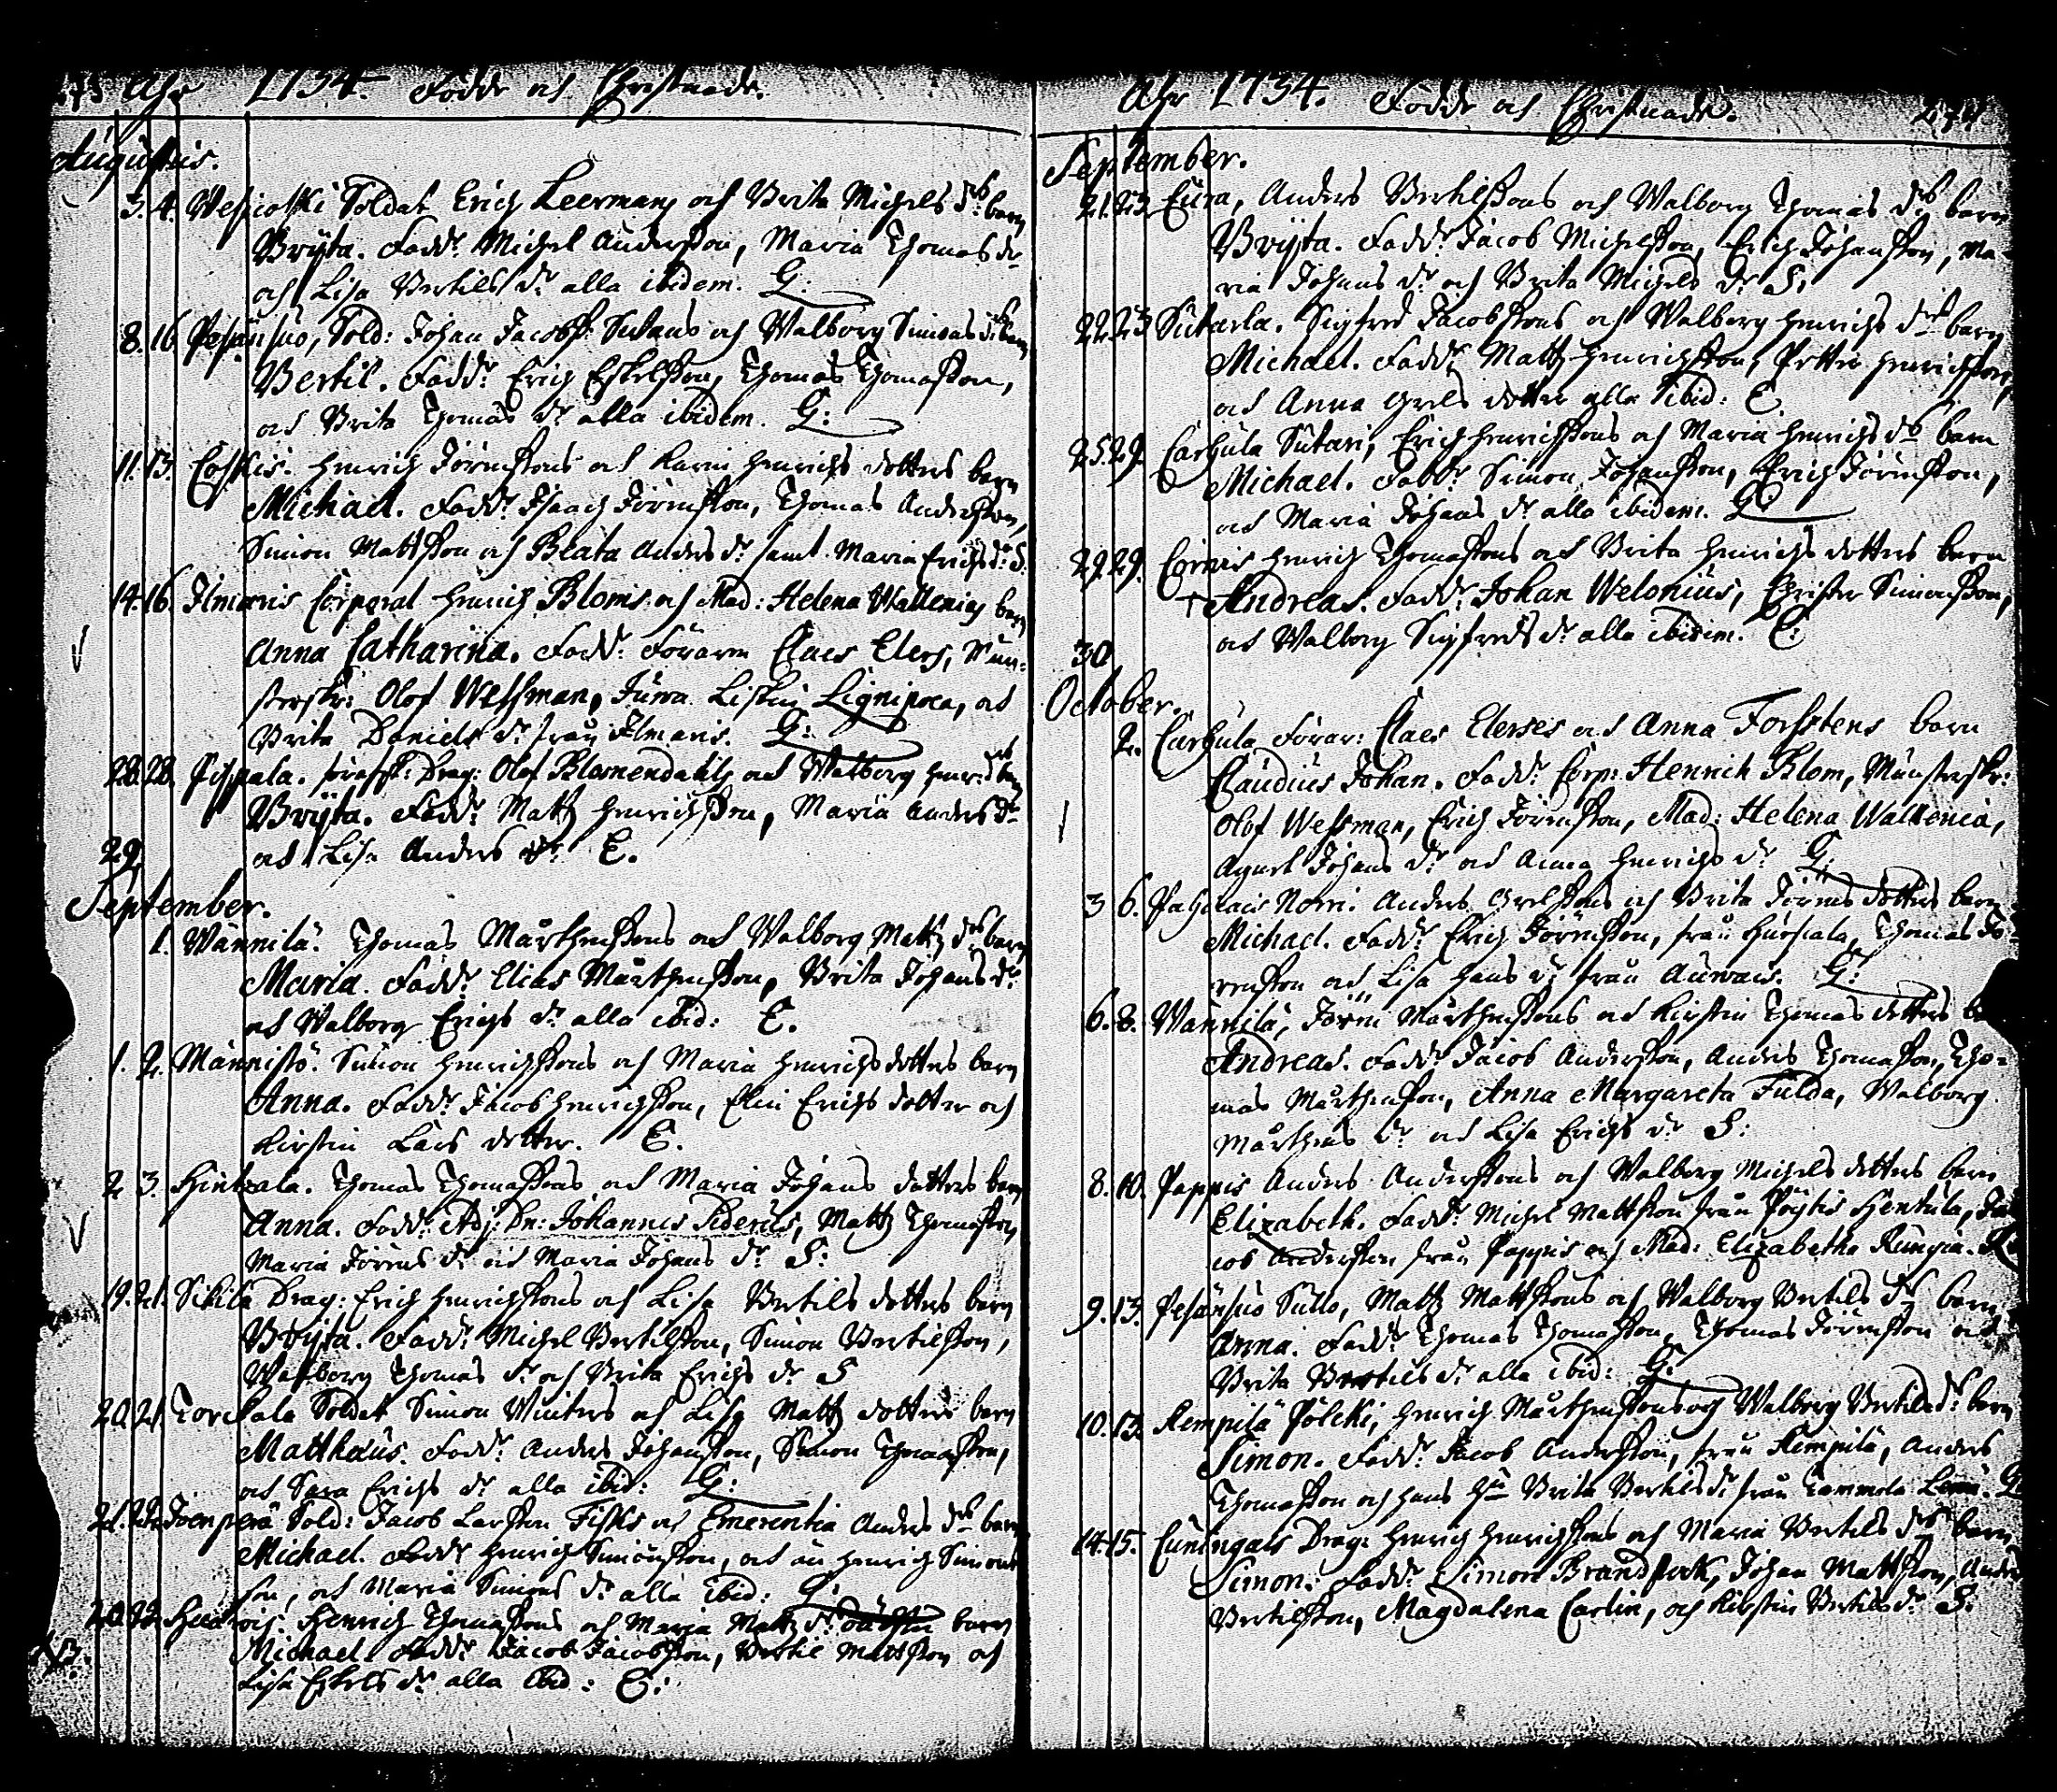 Ahr 1734. Födde och Christnade.
Augustus.
3. 4. Soldat Erich Leermans och Brita Michels drs barn
Brijta. Fadd: Michel Andersson, Maria Thomas dr
och Lisa Bertils dr alla ibidem. G:
8. 16. Pesänsuo, Sold: Johan Jacobss: Sutans och Walborg Simons drs barn
Bertil. Fadd: Erich Eskelsson, Thomas Thomasson,
och Brita Thomas dr alla ibidem. G:
11. 13. Coskis. Henrich Jörenssons och Karin Henrichs dotters barn
Michael. Fadd: Isaach Jörensson, Thomas Andersson,
Simon Mattsson och Beata Anders dr samt Maria Erichs dr S.
14. 16. Ilmaris Corporal Henrich Bloms och Mad: Helena Wallenias barn
Anna Catharina. Fadd: Föraren Claes Elers, Mün-
sterskr: Olof Wessman, Jüva Liskin Lignipoea, och
Brita Daniels dr från Ilmaris. G:
28. 28. Pispala. Drag: Olof Blomendahls och Walborg Henr: drs barn
Brijta. Fadd: Matts Henrichsson, Maria Anders dr
29. och Lisa Anders dr E.
September.
1. Wännilä. Thomas Mårthenssons och Walborg Matts drs barn
Maria. Fadd: Elias Mårthensson, Brita Johans dr
och Walborg Erichs dr alla ibid: E.
1. 2. Männistö. Simon Henrichssons och Maria Henrichs dotters barn
Anna. Fadd: Jacob Henrichsson, Elin Erichs dotter och
Kirstin Lars dotter. E.
2. 3. Hintzala. Thomas Thomassons och Maria Johans dotters barn
Anna. Fadd: Adj: Dn: Johannes Siderius, Matts Thomasson
Maria Jörens dr och Maria Johans dr S:
19. 21. Sikilä Drag: Erich Henrichssons och Lisa Bertils dotters barn
Brijta. Fadd: Michel Bertilsson, Simon Bertilsson,
Walborg Thomas dr och Brita Erichs dr S
20. 21. Torckala Soldat Simon Winters och Lisa Matts dotters barn
Matthæus. Fadd: Anders Johansson, Simon Thomasson,
och Sara Erichs dr alla ibid: G:
21. 22. Joenperä Sold: Jacob Larsson Fisks och Emerentia Anders drs barn
Michael. Fadd: Henrich Simonsson, och än Henrich Simons-
son, och Maria Simons dr alla ibid: G:
20. 22. Henrich Thomassons och Maria Matts drs barn
NB. Michael. Fadd: Jacob Jacobsson, Bertil Mattsson och
Lisa Eskels dr alla ibid: E:
Ahr 1734. Födde och Christnade.
September.
21. 23. Eura, Anders Bertilssons och Walborg Thomas drs barn
Brijta. Fadd: Jacob Michelsson, Erich Johansson, Ma-
ria Johans dr och Brita Michels dr S.
22. 23 Sutarla. Sigfred Jacobssons och Walborg Henrichs drs barn
Michael. Fadd: Matts Henrichsson, Petter Henrichsson,
och Anna Grels dotter alla ibid: E
25. 29. Carhula Sutari, Erich Henrichssons och Maria Henrichs drs barn
Michael. Fadd: Simon Johansson, Erich Jörensson,
och Maria Johans dr alla ibidem. G:
29. 29. Corvis Henrich Thomassons och Brita Henrichs dotters barn
Andreas. Fadd: Johan Welonius, Christer Simonsson,
och Walborg Sigfreds dr alla ibidem. E:
30
October.
2. Carhula Förar: Claes Elerses och Anna Forsstens barn
Claudius Johan. Fadd: Corp: Henrich Blom, Münsterskr:
Olof Wessman, Erich Jörensson, Mad: Helena Wallenia,
Agnet Johans dr och Anna Henrichs dr G:
3 6. Pahelais Norri. Anders Grelssons och Brita Jörens dotters barn
Michael. Fadd: Erich Jörensson, från Huovala, Thomas Jö-
rensson och Lisa Hans dr från Auvais. G:
6. 8. Wännilä, Jören Mårthenssons och Kirstin Thomas dotters
Andreas. Fadd: Jacob Andersson, Anders Thomasson, Tho-
mas Mårthensson, Anna Margareta Fulda, Walborg
Mårthens dr och Lisa Erichs dr S:
8. 10. Pappis Anders Anderssons och Walborg Michels dotters barn
Elizabeth. Fadd: Michel Mattsson från Pöytis Hentula, Ja-
cob Andersson från Pappis och Mad: Elizabetha Rungia.
9. 13. Pesänsuo Sullo, Matts Mattssons och Walborg Bertils drs barn
Anna. Fadd: Thomas Thomasson, Thomas Jörensson och
Brita Bertils dr alla ibid: G:
10. 13. Rempilä Pölcki, Henrich Mårthenssons och Walborg Bertils drs barn
Simon. Fadd: Jacob Andersson, från Rempilä, Anders
Thomasson och hans hu Brita Bertils dr från Tammela G
14. 15. Cuningais Drag: Henrich Henrichssons och Maria Bertils drs barn
Simon. Fadd: Simon Brandstack, Johan Mattsson, Anders
Bertilsson, Magdalena Carlin, och Kirstin Bertils dr S.